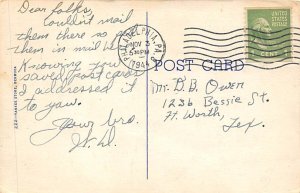 Dear folks,
Couldn't mail
them there so
them in mail
Knowing you
saved post cards
I addressed it
to you.
Your bro.
W.D.
PHILADELPHIA, PA.
NOV 3
5 PM
1944
POST CARD
Mr. D. B. Owen
1236 Bessie St.
Ft. Worth,
Tex.